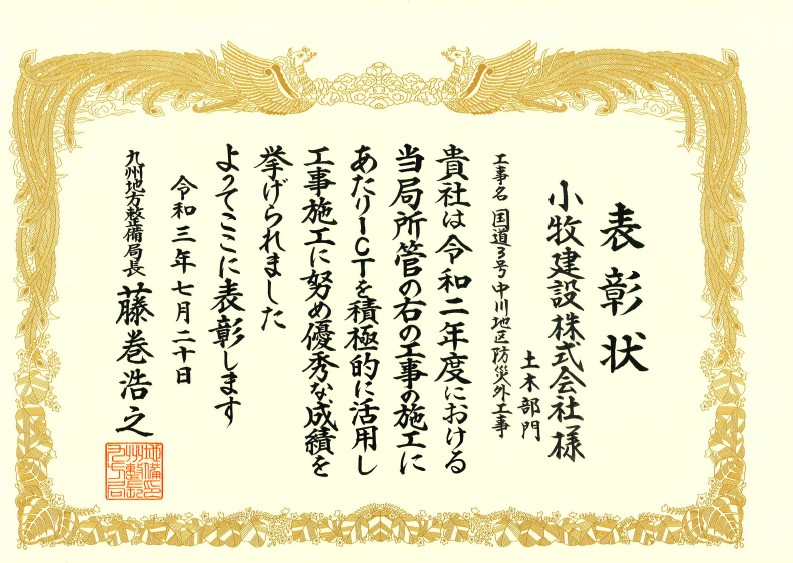 表彰状
小牧建設株式会社様
土木部門
工事名 国道3号中川地区防災外工事
貴社は令和二年度における
当局所管の右の工事の施工に
あたりICTを積極的に活用し
工事施工に努め優秀な成績を
挙げられました
よってここに表彰します
令和三年七月二十日
九州地方整備局長 藤巻浩之